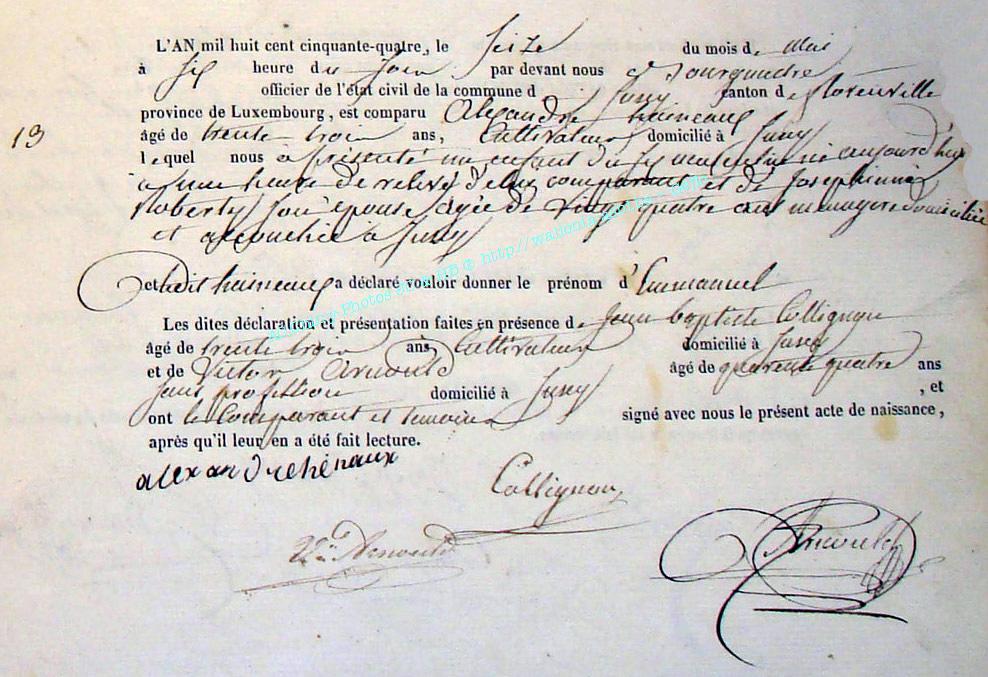 L'AN mil huit cent cinquante-quatre, le Seize du mois de Mai
à Six heure du Soir par devant nous
officier de l'état civil de la commune d Jusy canton de florenville
province de Luxembourg, est comparu Alexandre haineaux
13
âgé de trente trois ans, Cultivateur domicilié à Jusy
lequel nous à présenté un enfant du Sex masculin né aujourd'hui
à une heure de relevé de lui comparant et de Josephinne
Roberty Son épouse, agée de vingt quatre ans menagere domiciliée
et accouchée à Jusy
et ledit haineaux a déclaré vouloir donner le prénom d'Emmanuel
Les dites déclaration et présentation faites en présence de Jean baptiste Collignon
âgé de trente trois ans Cultivateur domicilié à Jusy
et de Victor Arnould âgé de quarente quatre ans
Sans profession domicilié à Jusy , et
ont le Comparant et temoins signé avec nous le présent acte de naissance,
après qu'il leur en a été fait lecture.
alexandre hénaux
Collignon
Vor Arnould
Wallonia: Photos @ http://wallonia